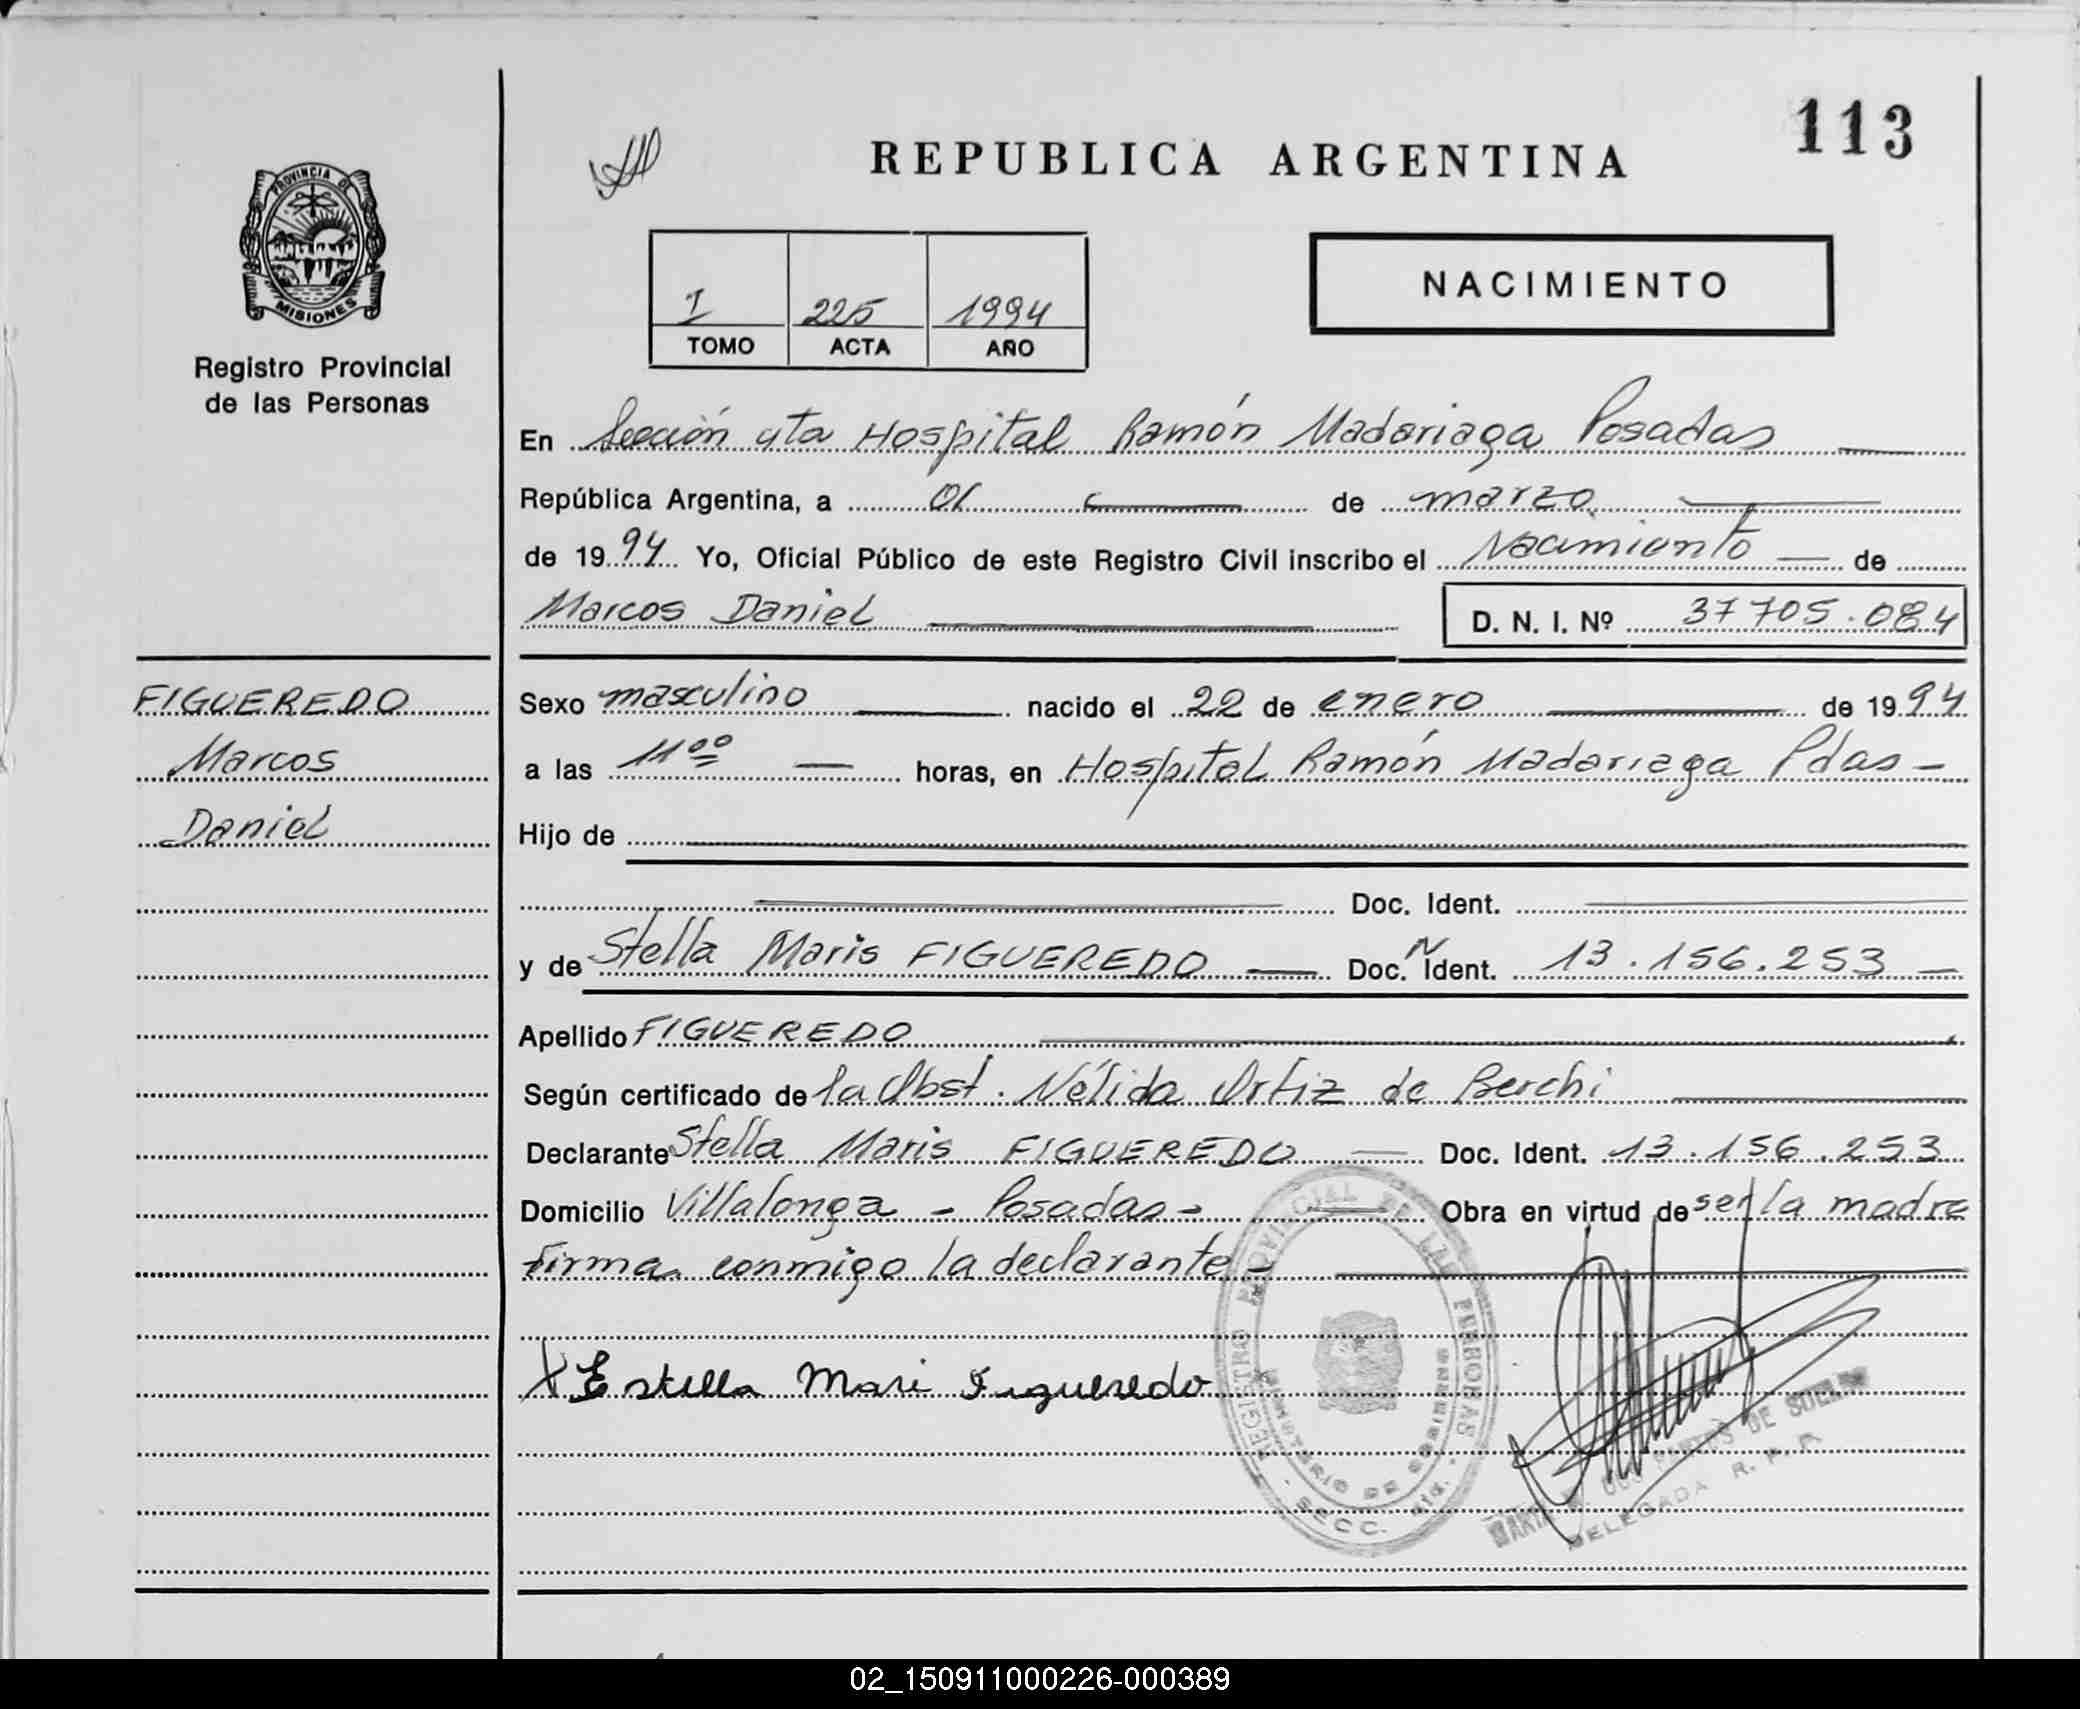 113
REPUBLICA ARGENTINA
PROVINCIA DE
MISIONES
Registro Provincial
de las Personas
NACIMIENTO
I 225 1994
TOMO ACTA AÑO
En Sección 4ta Hospital Ramón Madariaga Posadas
República Argentina, a 01 de marzo
de 1994 Yo, Oficial Público de este Registro Civil inscribo el Nacimiento de
Marcos Daniel D. N. I. Nº 37705.084
FIGUEREDO
Marcos
Daniel
Sexo masculino nacido el 22 de enero de 1994
a las 11⁰⁰ horas, en Hospital Ramón Madariaga Pdas
Hijo de
Doc. Ident.
y de Stella Maris FIGUEREDO Doc. N Ident. 13.156.253
Apellido FIGUEREDO
Según certificado de la Obst. Nélida Ortiz de Berchi
Declarante Stella Maris FIGUEREDO Doc. Ident. 13.156.253
Domicilio Villalonga - Posadas - Obra en virtud de ser la madre
firma conmigo la declarante -
X Estella Mari Figueredo
REGISTRO PROVINCIAL DE LAS PERSONAS
MINISTERIO DE GOBIERNO
SECC. 4ta.
DE
DELEGADA R. P. P.
02_150911000226-000389